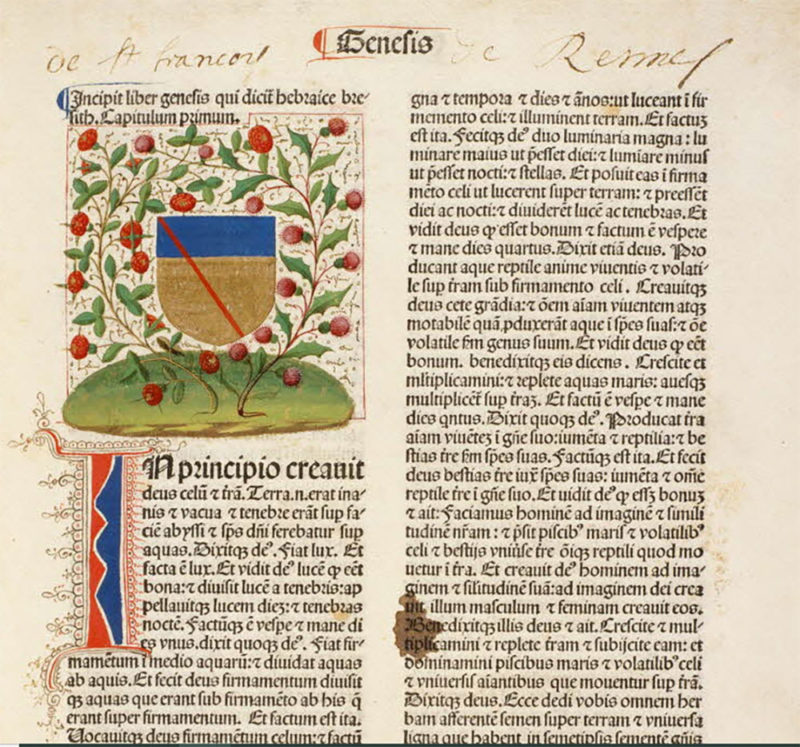 Genesis
de st francois de Rennes
Incipit liber genesis qui dicit̃ hebraice bre-
sith. Capitulum primum.
IN principio creauit
deus celũ ⁊ t̃rã. Terra.n.erat ina-
nis ⁊ vacua ⁊ tenebre erãt sup fa-
ciẽ abyssi ⁊ sp̃s dñi ferebatur sup
aquas. Dixitqꝫ deꝰ. Fiat lux. Et
facta ẽ lux. Et vidit deꝰ lucẽ ꝙ eẽt
bona: ⁊ diuisit lucẽ a tenebris: ap
pellauitqꝫ lucem dieꝫ: ⁊ tenebras
noctẽ. Factũqꝫ ẽ vesp̃e ⁊ mane di
es vnus. dixit quoqꝫ deꝰ. Fiat fir-
mamẽtum ĩ medio aquarũ: ⁊ diuidat aquas
ab aquis. Et fecit deus firmamentum diuisit
qꝫ aquas que erant sub firmamẽto ab his q̃
erant super firmamentum. Et factum est ita.
Uocauitqꝫ deus firmamentum celum: ⁊ factũ
gna ⁊ tempora ⁊ dies ⁊ ãnos: ut luceant ĩ fir
memento celi: ⁊ illuminent terram. Et factuꝫ
est ita. Fecitqꝫ deꝰ duo luminaria magna: lu
minare maius ut p̃esset diei: ⁊ lumĩare minus
ut p̃esset nocti: ⁊ stellas. Et posuit eas ĩ firma
mẽto celi ut lucerent super terram: ⁊ preessẽt
diei ac nocti: ⁊ diuiderẽt lucẽ ac tenebras. Et
vidit deus ꝙ esset bonum ⁊ factum ẽ vespere
⁊ mane dies quartus. Dixit etiã deus. Pro
ducant aque reptile anime viuentis ⁊ volati-
le sup t̃ram sub firmamento celi. Creauitqꝫ
deus cete grãdia: ⁊ õem aĩam viuentem atqꝫ
motabilẽ quã ꝓduxerãt aque ĩ sp̃es suas: ⁊ õe
volatile ẜm genus suum. Et vidit deus ꝙ eẽt
bonum. benedixitqꝫ eis dicens. Crescite et
mltiplicamini: ⁊ replete aquas maris: auesqꝫ
multiplicẽt sup t̃raꝫ. Et factũ ẽ vesp̃e ⁊ mane
dies qntus. Dixit quoqꝫ deꝰ. Producat t̃ra
aĩam viuẽteꝫ ĩ gñe suo: iumẽta ⁊ reptilia: ⁊ be
stias t̃re ẜm sp̃es suas. Factũqꝫ est ita. Et fecit
deus bestias t̃re iux̃ sp̃es suas: iumẽta ⁊ om̃e
reptile t̃re ĩ gñe suo. Et uidit deꝰ ꝙ essꝫ bonuꝫ
⁊ ait: Faciamus hominẽ ad imaginẽ ⁊ simili
tudinẽ nr̃am: ⁊ p̃sit piscibꝰ maris ⁊ volatilibꝰ
celi ⁊ bestijs vniũse t̃re õiqꝫ reptili quod mo
uetur ĩ t̃ra. Et creauit deꝰ hominem ad ima-
ginem ⁊ sĩlitudinẽ suã: ad imaginem dei crea
uit illum masculum ⁊ feminam creauit eos.
Benedixitqꝫ illis deus ⁊ ait. Crescite ⁊ mul-
tiplicamini ⁊ replete t̃ram ⁊ subijcite eam: et
dominamini piscibus maris ⁊ volatilibꝰ celi
⁊ vniuersis aĩantibus que mouentur sup t̃rã.
Dixitqꝫ deus. Ecce dedi vobis omnem her
bam afferentẽ semen super terram ⁊ vniuersa
ligna que habent in semetipsis sementẽ gñis